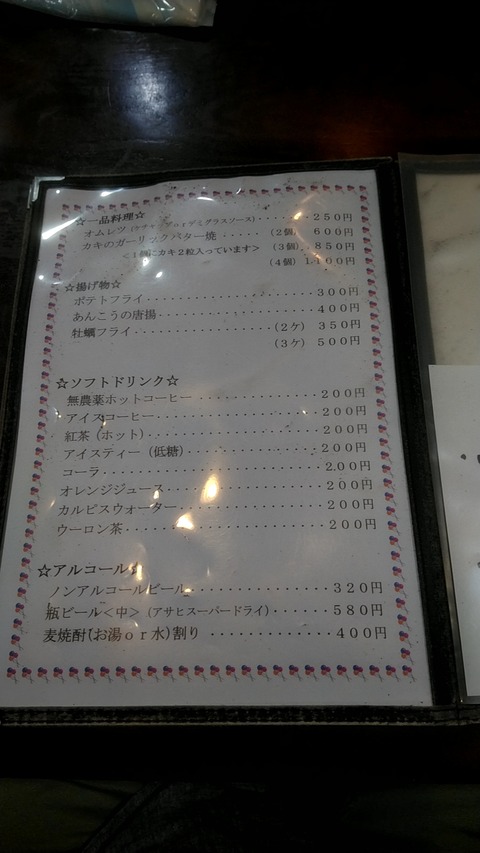 ☆一品料理☆
オムレツ(ケチャップorデミグラスソース)・・・・・・・250円
カキのガーリックバター焼・・・・・(2個) 600円
<1個にカキ2粒入っています> (3個) 850円
(4個) 1,100円
☆揚げ物☆
ポテトフライ・・・・・・・・・・・・・・・・・・・300円
あんこうの唐揚・・・・・・・・・・・・・・・・・・400円
牡蠣フライ・・・・・・・・・・・・・・・(2ケ) 350円
(3ケ) 500円
☆ソフトドリンク☆
無農薬ホットコーヒー・・・・・・・・・・・・・200円
アイスコーヒー・・・・・・・・・・・・・・・・・200円
紅茶(ホット)・・・・・・・・・・・・・・・・・・200円
アイスティー(低糖)・・・・・・・・・・・・・・200円
コーラ・・・・・・・・・・・・・・・・・・・・・・・200円
オレンジジュース・・・・・・・・・・・・・・・・200円
カルピスウォーター・・・・・・・・・・・・・・・200円
ウーロン茶・・・・・・・・・・・・・・・・・・・・200円
☆アルコール☆
ノンアルコールビール・・・・・・・・・・・・・320円
瓶ビール<中>(アサヒスーパードライ)・・・・・・580円
麦焼酎(お湯or水)割り ・・・・・・・・・・・・400円